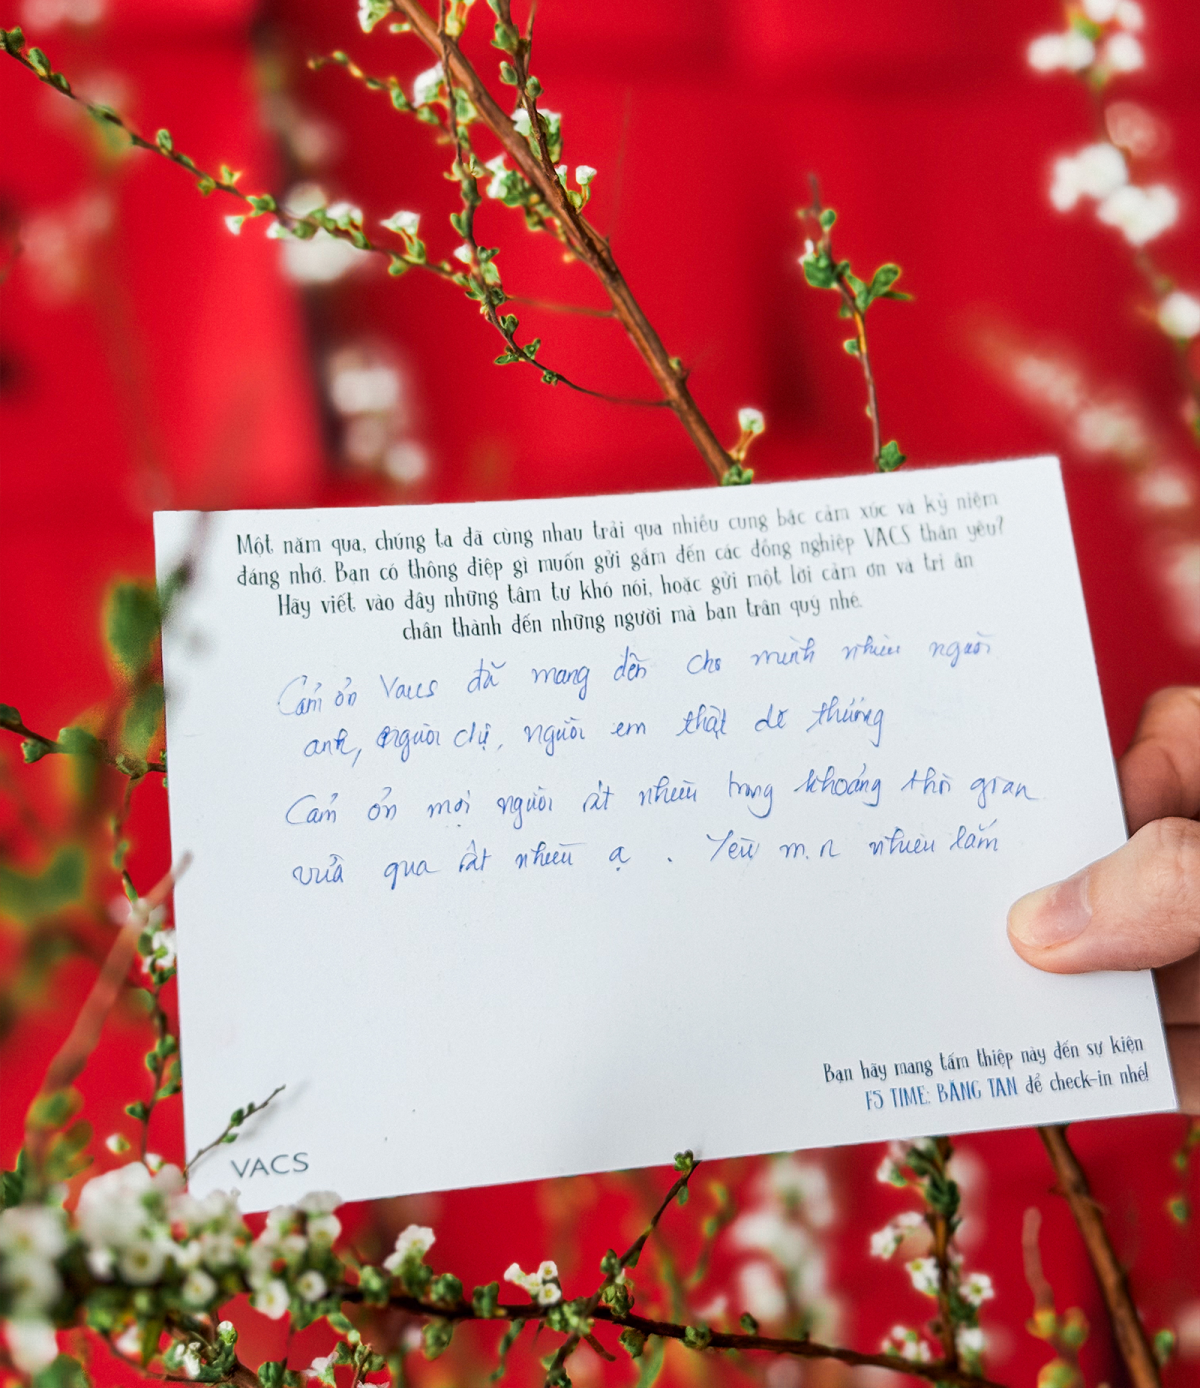 Một năm qua, chúng ta đã cùng nhau trải qua nhiều cung bậc cảm xúc và kỷ niệm
đáng nhớ. Bạn có thông điệp gì muốn gửi gắm đến các đồng nghiệp VACS thân yêu?
Hãy viết vào đây những tâm tư khó nói, hoặc gửi một lời cảm ơn và tri ân
chân thành đến những người mà bạn trân quý nhé.
Cảm ơn Vacs đã mang đến cho mình nhiều người
anh, người chị, người em thật dễ thương
Cảm ơn mọi người rất nhiều trong khoảng thời gian
vừa qua rất nhiều ạ. Yêu m.n nhiều lắm
Bạn hãy mang tấm thiệp này đến sự kiện
F5 TIME: BĂNG TAN để check-in nhé!
VACS